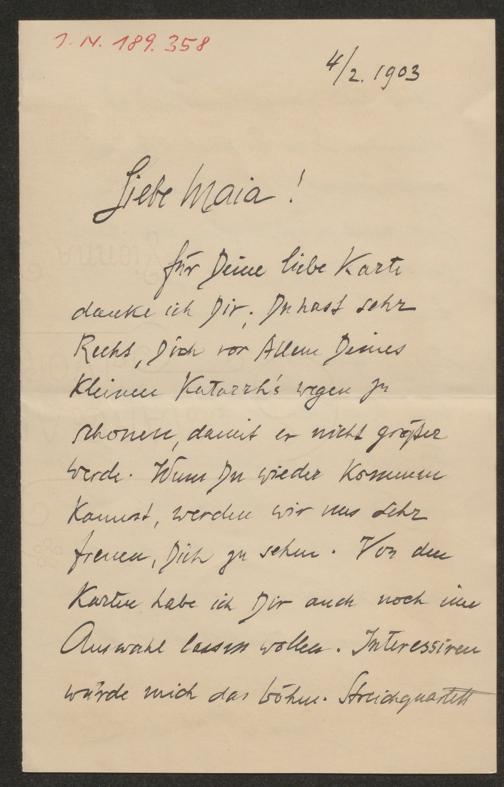 J. N. 189.358
4/2. 1903
Liebe Maia!
für Deine liebe Karte
danke ich Dir. Du hast sehr
Recht, Dich vor Allem Deines
kleinen Katarrh's wegen zu
schonen, damit er nicht größer
werde. Wenn Du wieder kommen
kannst, werden wir uns sehr
freuen, Dich zu sehen. Von den
Karten habe ich Dir auch noch eine
Auswahl lassen wollen. Interessiren
würde mich das böhm. Streichquartett